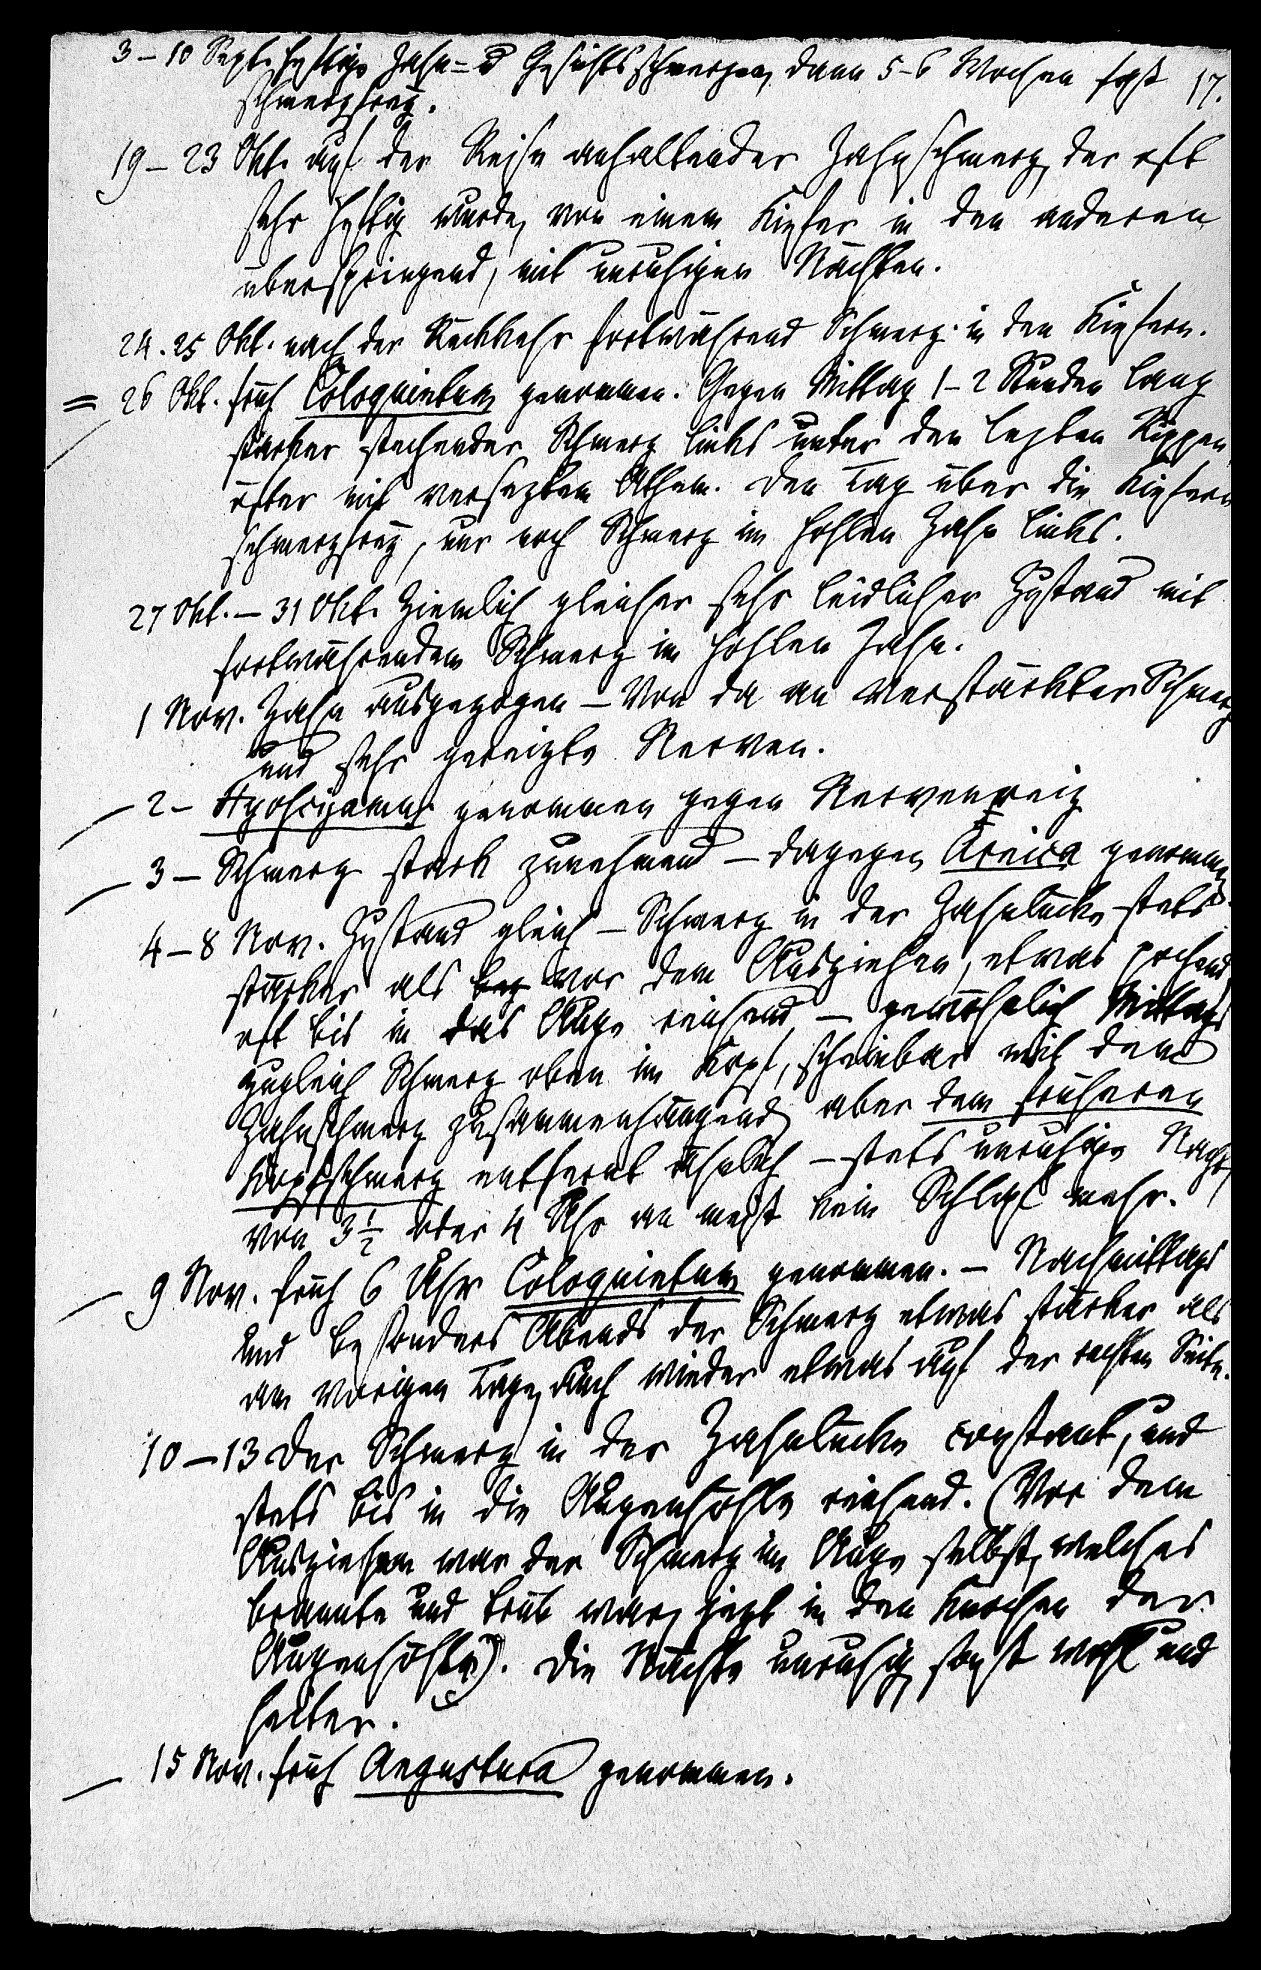 3 – 10 Sept. heftige Zahn= u Gesichtsschmerzen, dann 5-6 Wochen fast 17.
schmerzfrei.
19 – 23 Okt. auf der Reise anhaltender Zahnschmerz, der oft
sehr heftig wurde, von einem Kiefer in den anderen
überspringend, mit unruhigen Nächten.
24. 25 Okt. nach der Rückkehr fortwährend Schmerz in den Kiefern.
= 26 Okt. früh Coloquintum genommen. Gegen Mittag 1-2 Stunden lang
starker stechender Schmerz links unter den lezten Rippen,
öfter mit verseztem Athem. Den Tag über die Kiefern
schmerzfrei, nur noch Schmerz im hohlen Zahn links.
27 Okt. – 31 Okt. Ziemlich gleicher sehr leidlicher Zustand mit
fortwährendem Schmerz im hohlen Zahn.
1 Nov. Zahn ausgezogen – Von da an verstärkter Schmerz
und sehr gereizte Nerven.
– 2 – Hyosciyamus genommen gegen Nervenreiz
– 3 – Schmerz stark zunehmend – dagegen Arnica genommen.
4 – 8 Nov. Zustand gleich – Schmerz in der Zahnlücke stets
stärker als vor dem Ausziehen, etwas pochend
oft bis in das Auge reichend, – gewöhnlich Mittags
zugleich Schmerz oben im Kopf, scheinbar mit dem
Zahnschmerz zusammenhängend, aber dem früheren
Kopfschmerz entfernt ähnlich – stets unruhige Nacht,
von 3 1/2 oder 4 Uhr an meist kein Schlaf mehr.
– 9 Nov. früh 6 Uhr Coloquintum genommen. – Nachmittags
und besonders Abends der Schmerz etwas stärker als
am vorigen Tage, auch wieder etwas auf der rechten Seite.
10 – 13 Der Schmerz in der Zahnlücke constant, und
stets bis in die Augenhöhle reichend. (Vor dem
Ausziehen war der Schmerz im Auge selbst, welches
brannte und trüb war, jezt in den Knochen der
Augenhöhle). Die Nächte unruhig, sonst wohl und
heiter.
– 15 Nov. früh Angustura genommen.